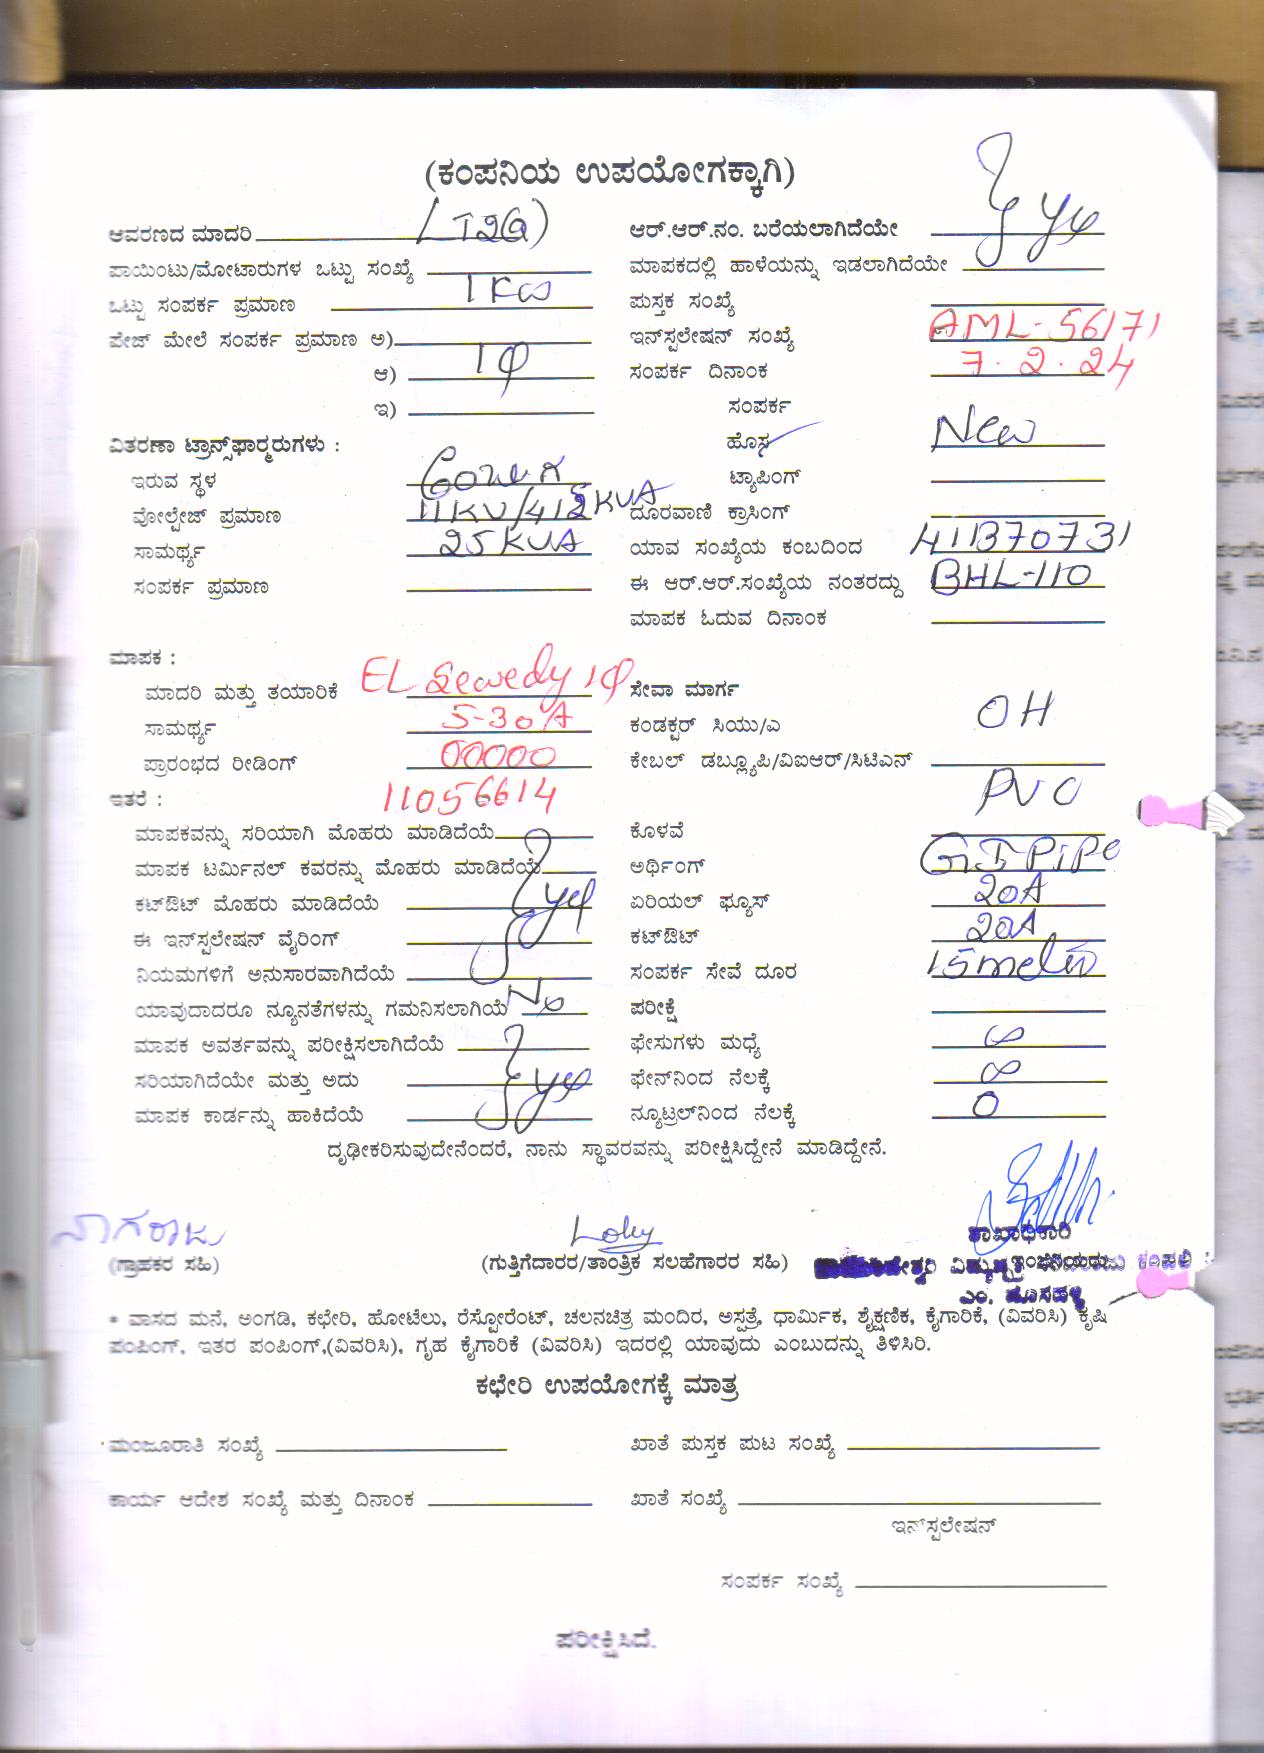 (ಕಂಪನಿಯ ಉಪಯೋಗಕ್ಕಾಗಿ)
ಆವರಣದ ಮಾದರಿ LT2(a) ಆರ್.ಆರ್.ನಂ. ಬರೆಯಲಾಗಿದೆಯೇ yes
ಪಾಯಿಂಟು/ಮೋಟಾರುಗಳ ಒಟ್ಟು ಸಂಖ್ಯೆ ಮಾಪಕದಲ್ಲಿ ಹಾಳೆಯನ್ನು ಇಡಲಾಗಿದೆಯೇ
ಒಟ್ಟು ಸಂಪರ್ಕ ಪ್ರಮಾಣ 1 KW ಪುಸ್ತಕ ಸಂಖ್ಯೆ
ಪೇಜ್ ಮೇಲೆ ಸಂಪರ್ಕ ಪ್ರಮಾಣ ಅ) ಇನ್‌ಸ್ಟಲೇಷನ್ ಸಂಖ್ಯೆ AML-56171
ಆ) 1φ ಸಂಪರ್ಕ ದಿನಾಂಕ 7.2.24
ಇ) ಸಂಪರ್ಕ
ವಿತರಣಾ ಟ್ರಾನ್ಸ್‌ಫಾರ್ಮರುಗಳು : ಹೊಸ New
ಇರುವ ಸ್ಥಳ ಟ್ಯಾಪಿಂಗ್
ವೋಲ್ಟೇಜ್ ಪ್ರಮಾಣ 11KV/415 KVA ದೂರವಾಣಿ ಕ್ರಾಸಿಂಗ್
ಸಾಮರ್ಥ್ಯ 25 KVA ಯಾವ ಸಂಖ್ಯೆಯ ಕಂಬದಿಂದ 411370731
ಸಂಪರ್ಕ ಪ್ರಮಾಣ ಈ ಆರ್.ಆರ್.ಸಂಖ್ಯೆಯ ನಂತರದ್ದು BHL-110
ಮಾಪಕ ಓದುವ ದಿನಾಂಕ
ಮಾಪಕ :
ಮಾದರಿ ಮತ್ತು ತಯಾರಿಕೆ EL Sewedy 1φ ಸೇವಾ ಮಾರ್ಗ
ಸಾಮರ್ಥ್ಯ 5-30A ಕಂಡಕ್ಟರ್ ಸಿಯು/ಎ OH
ಪ್ರಾರಂಭದ ರೀಡಿಂಗ್ 00000 ಕೇಬಲ್ ಡಬ್ಲ್ಯೂಪಿ/ವಿಐಆರ್/ಸಿಟಿಎನ್
ಇತರೆ : 11056614 PVC
ಮಾಪಕವನ್ನು ಸರಿಯಾಗಿ ಮೊಹರು ಮಾಡಿದೆಯೆ ಕೊಳವೆ
ಮಾಪಕ ಟರ್ಮಿನಲ್ ಕವರನ್ನು ಮೊಹರು ಮಾಡಿದೆಯೆ ಅರ್ಥಿಂಗ್ GI Pipe
ಕಟ್ಔಟ್ ಮೊಹರು ಮಾಡಿದೆಯೆ yes ಏರಿಯಲ್ ಫ್ಯೂಸ್ 20A
ಈ ಇನ್‌ಸ್ಟಲೇಷನ್ ವೈರಿಂಗ್ ಕಟ್ಔಟ್ 20A
ನಿಯಮಗಳಿಗೆ ಅನುಸಾರವಾಗಿದೆಯೆ ಸಂಪರ್ಕ ಸೇವೆ ದೂರ 15 meter
ಯಾವುದಾದರೂ ನ್ಯೂನತೆಗಳನ್ನು ಗಮನಿಸಲಾಗಿಯೆ No ಪರೀಕ್ಷೆ
ಮಾಪಕ ಅವರ್ತವನ್ನು ಪರೀಕ್ಷಿಸಲಾಗಿದೆಯೆ ಫೇಸುಗಳು ಮಧ್ಯೆ ∞
ಸರಿಯಾಗಿದೆಯೇ ಮತ್ತು ಅದು yes ಫೇಸ್‌ನಿಂದ ನೆಲಕ್ಕೆ ∞
ಮಾಪಕ ಕಾರ್ಡನ್ನು ಹಾಕಿದೆಯೆ ನ್ಯೂಟ್ರಲ್‌ನಿಂದ ನೆಲಕ್ಕೆ 0
ದೃಢೀಕರಿಸುವುದೇನೆಂದರೆ, ನಾನು ಸ್ಥಾವರವನ್ನು ಪರೀಕ್ಷಿಸಿದ್ದೇನೆ ಮಾಡಿದ್ದೇನೆ.
ನಾಗರಾಜು
ಶಾಖಾಧಿಕಾರಿ
(ಗ್ರಾಹಕರ ಸಹಿ) (ಗುತ್ತಿಗೆದಾರರ/ತಾಂತ್ರಿಕ ಸಲಹೆಗಾರರ ಸಹಿ) ಇಂಜಿನಿಯರು
* ವಾಸದ ಮನೆ, ಅಂಗಡಿ, ಕಛೇರಿ, ಹೋಟೆಲು, ರೆಸ್ಟೋರೆಂಟ್, ಚಲನಚಿತ್ರ ಮಂದಿರ, ಅಸ್ಪತ್ರೆ, ಧಾರ್ಮಿಕ, ಶೈಕ್ಷಣಿಕ, ಕೈಗಾರಿಕೆ, (ವಿವರಿಸಿ) ಕೃಷಿ
ಪಂಪಿಂಗ್, ಇತರ ಪಂಪಿಂಗ್,(ವಿವರಿಸಿ), ಗೃಹ ಕೈಗಾರಿಕೆ (ವಿವರಿಸಿ) ಇದರಲ್ಲಿ ಯಾವುದು ಎಂಬುದನ್ನು ತಿಳಿಸಿರಿ.
ಕಛೇರಿ ಉಪಯೋಗಕ್ಕೆ ಮಾತ್ರ
ಮಂಜೂರಾತಿ ಸಂಖ್ಯೆ ಖಾತೆ ಪುಸ್ತಕ ಪುಟ ಸಂಖ್ಯೆ
ಕಾರ್ಯ ಆದೇಶ ಸಂಖ್ಯೆ ಮತ್ತು ದಿನಾಂಕ ಖಾತೆ ಸಂಖ್ಯೆ
ಇನ್‌ಸ್ಟಲೇಷನ್
ಸಂಪರ್ಕ ಸಂಖ್ಯೆ
ಪರೀಕ್ಷಿಸಿದೆ.